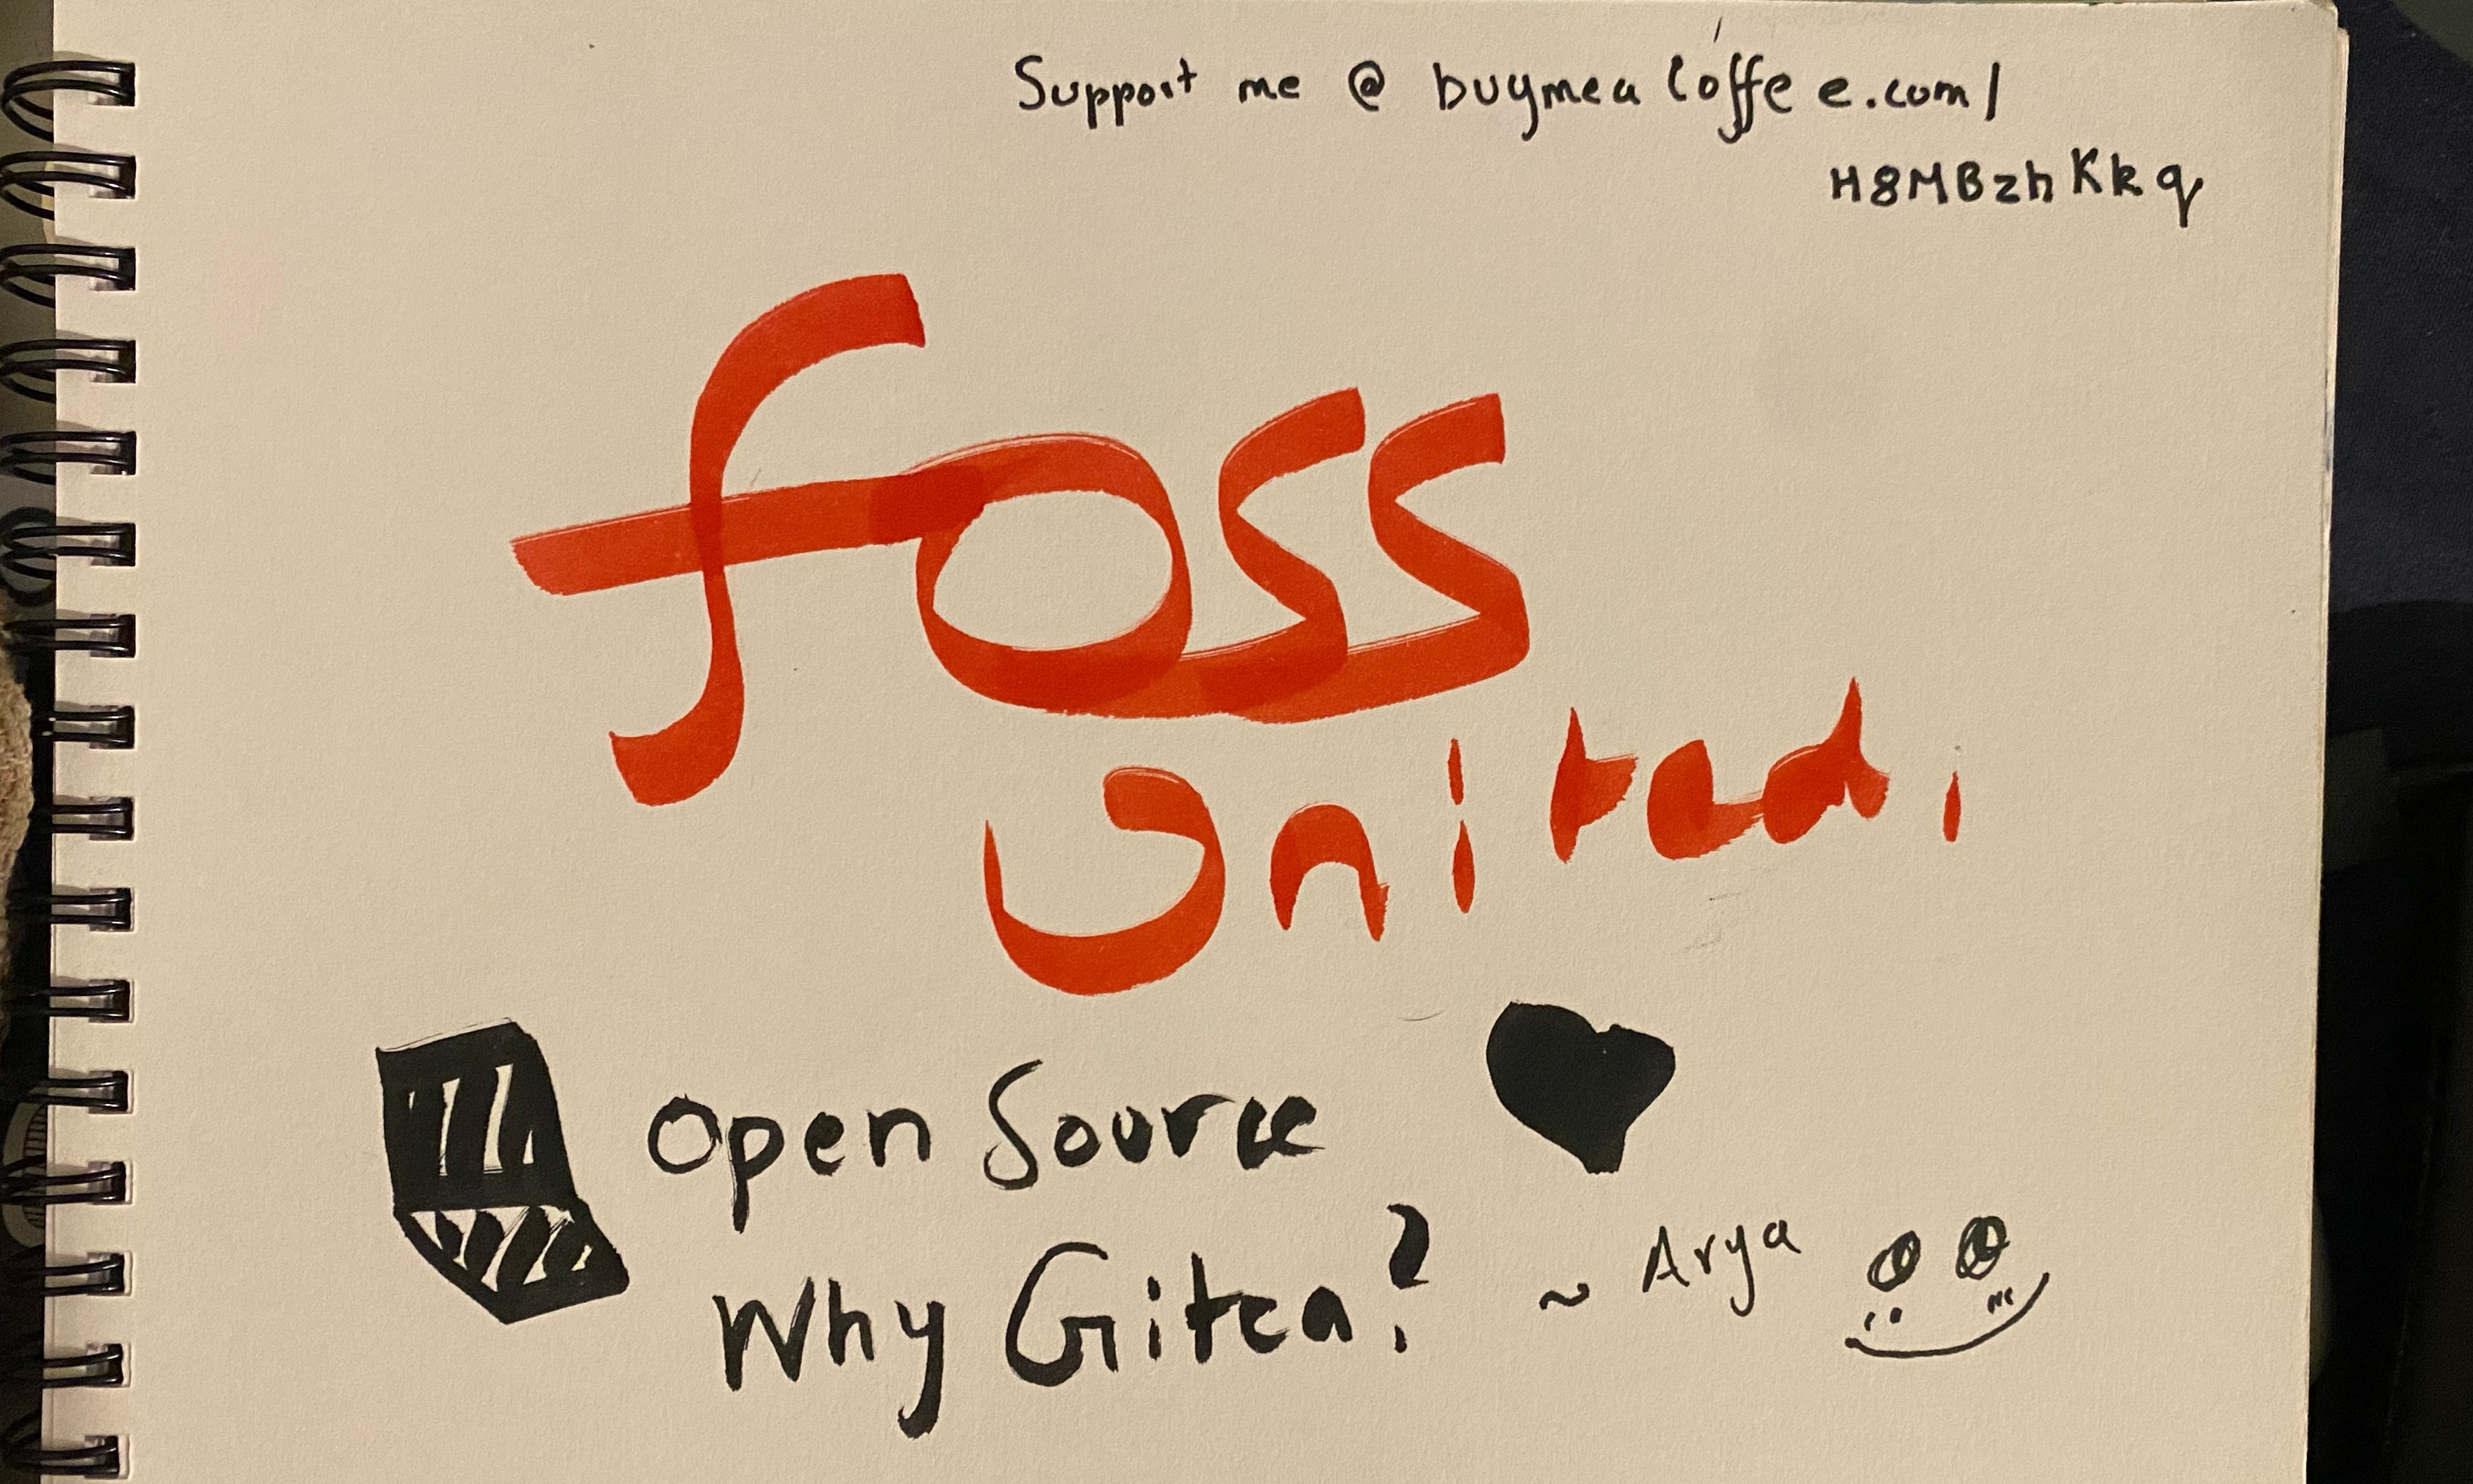 Support me @ buymeacoffee.com/
H8MBzhKkq
foss
United.
Open Source
Why Gitea?
~ Arya